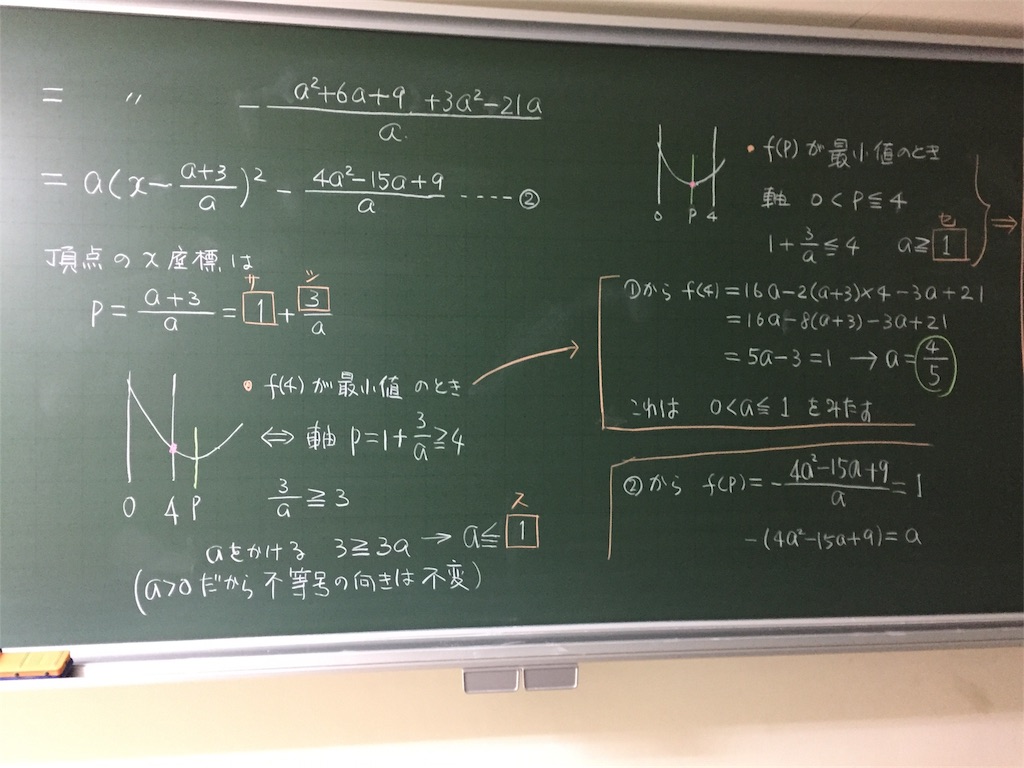 = 〃 - a²+6a+9+3a²-21a / a
= a(x - a+3/a)² - 4a²-15a+9/a ----②
頂点のx座標は
サ シ
P = a+3/a = 1 + 3/a
• f(4)が最小値のとき
⇔ 軸 P=1+3/a≧4
0 4 P
3/a ≧ 3
ス
aをかける 3≧3a → a≦ 1
(a>0だから不等号の向きは不変)
• f(P)が最小値のとき
軸 0<P≦4
0 P 4
セ
1+3/a≦4 a≧ 1
⇒
①から f(4)=16a-2(a+3)×4-3a+21
=16a-8(a+3)-3a+21
=5a-3=1 → a=4/5
これは 0<a≦1 をみたす
②から f(P)=-4a²-15a+9/a=1
-(4a²-15a+9)=a